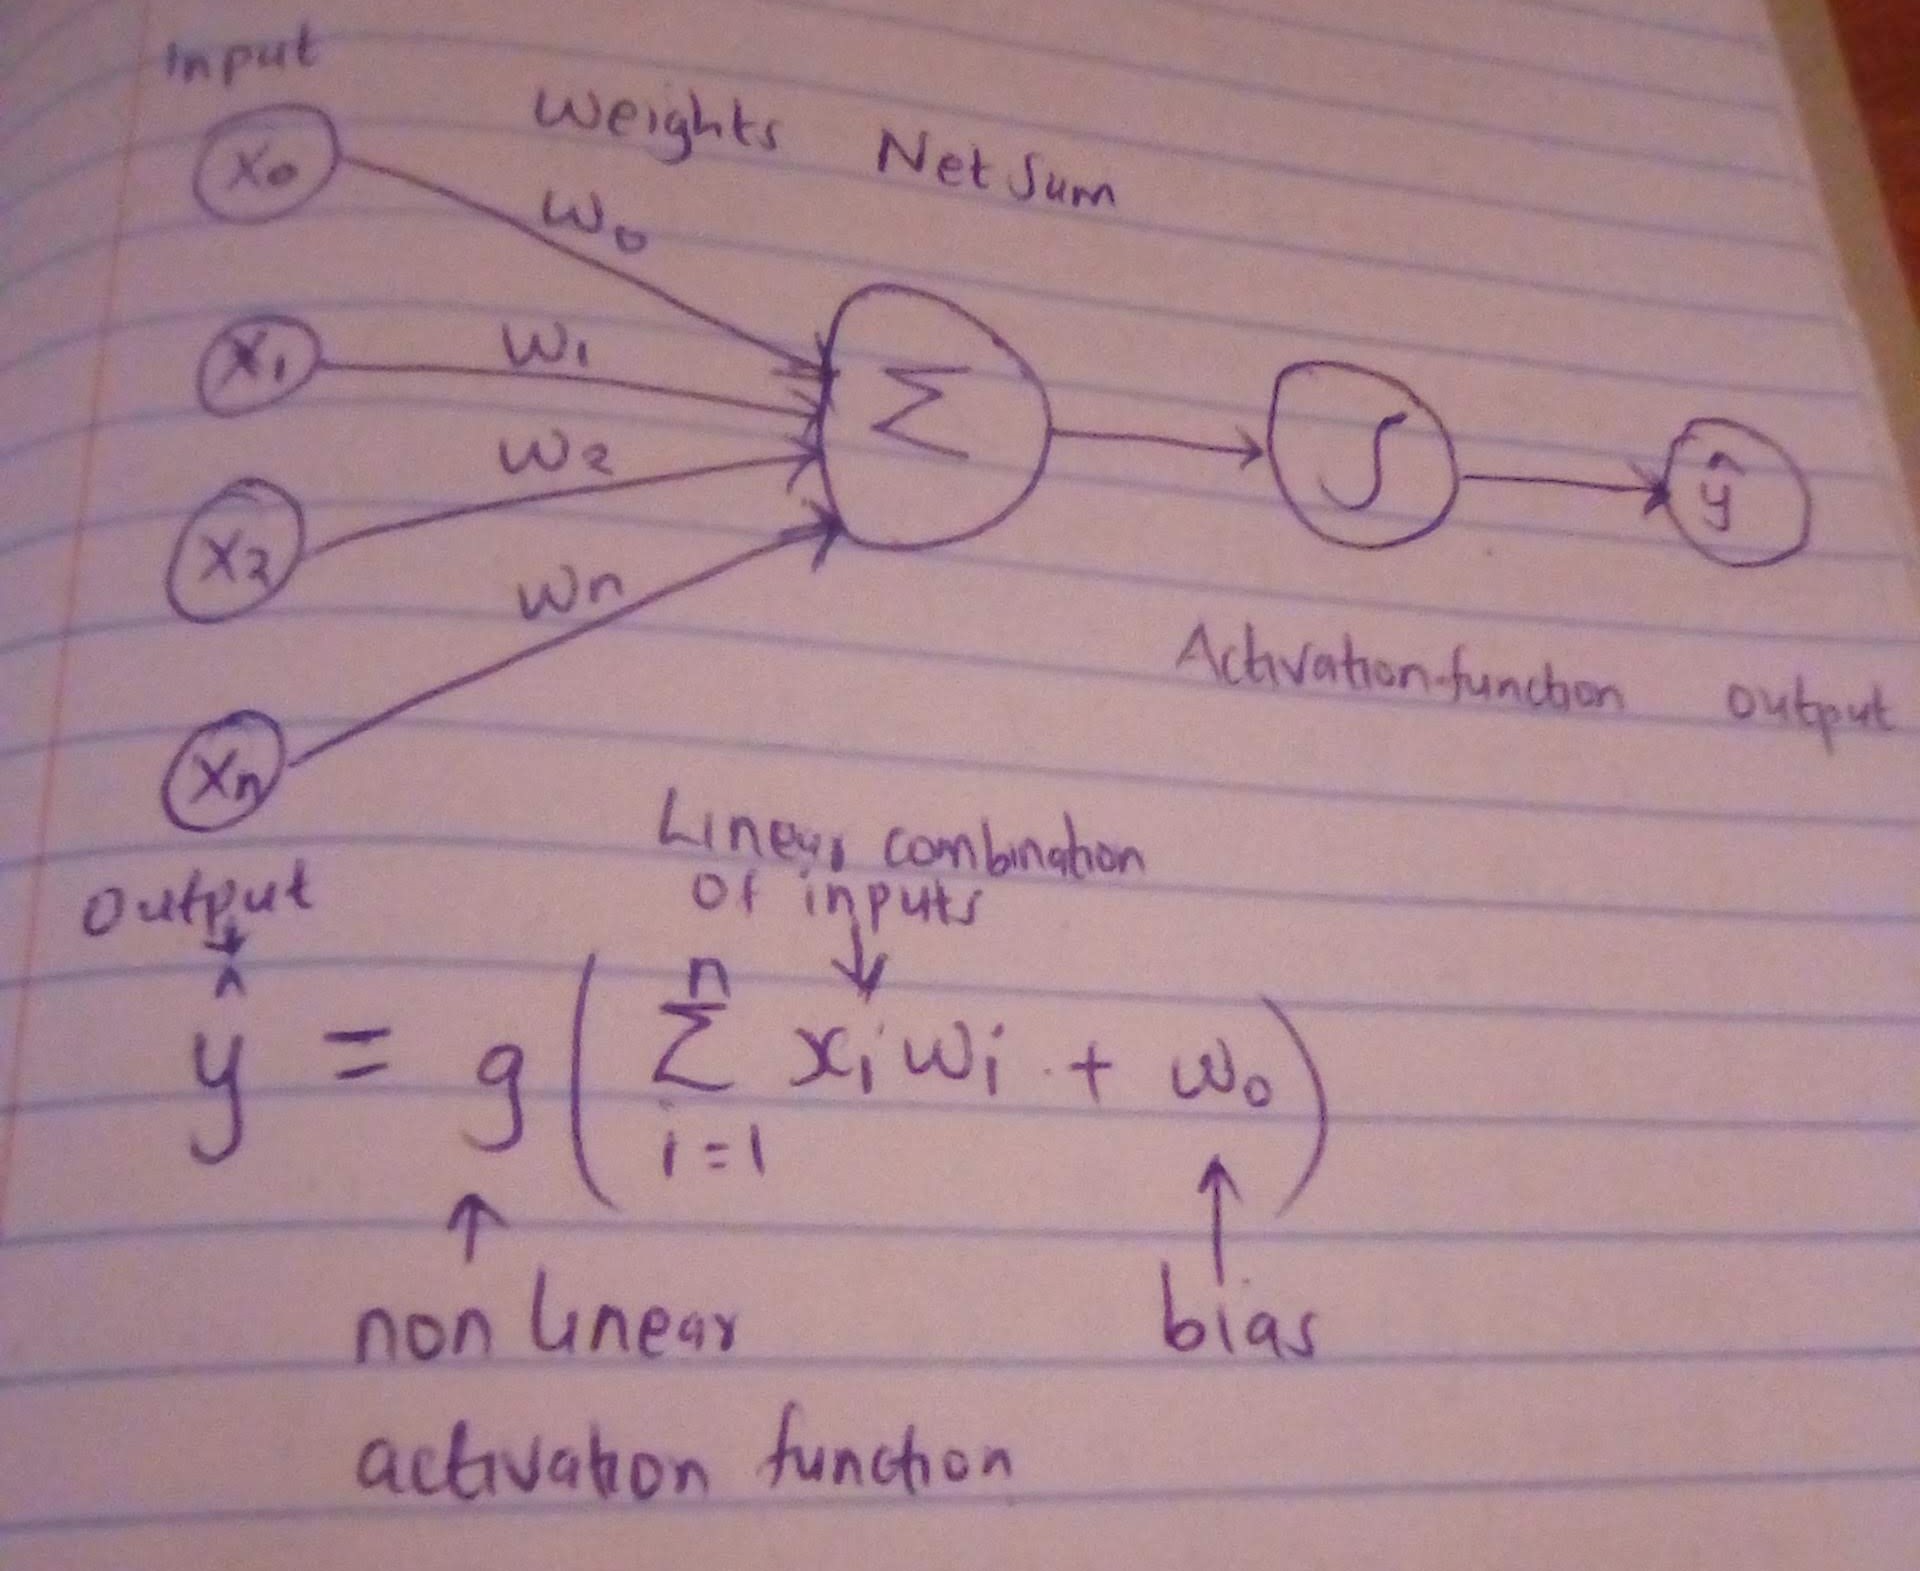 Input
Weights Net Sum
x₀
w₀
x₁
w₁
Σ
∫
ŷ
x₂
w₂
xn
wn
Activation function output
Linear combination
of inputs
Output
ŷ = g ( n Σ i=1 xᵢ wᵢ + w₀ )
non linear
bias
activation function